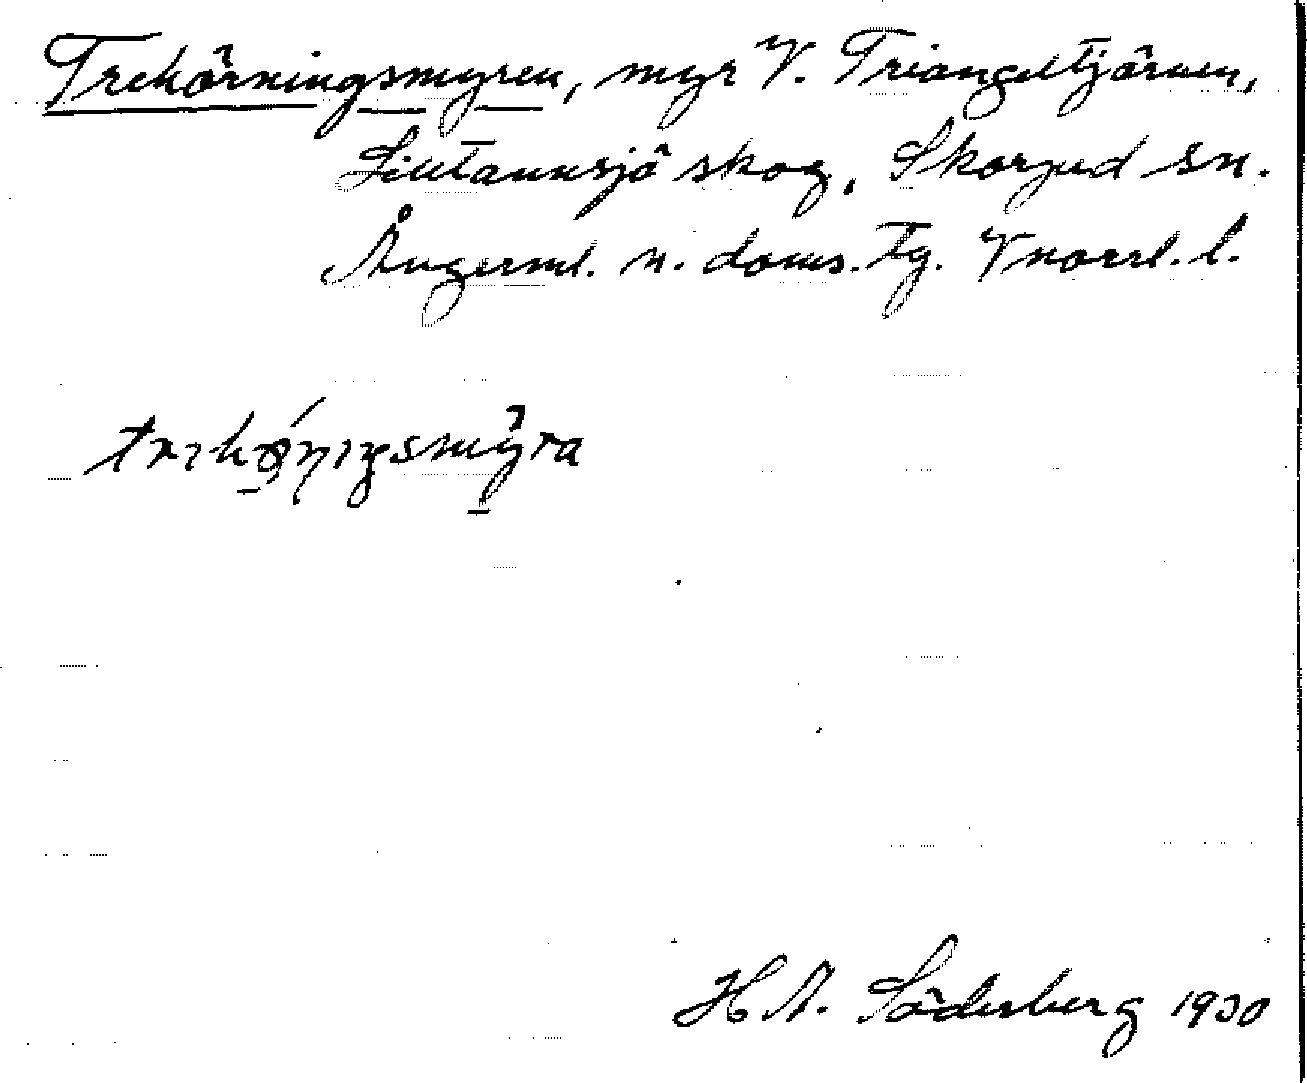 Trehörningsmyren, myr V. Triangeltjärnen,
Lilltannsjö skog, Skorped sn.
Ångerml. n. doms. tg. Vnorrl. l.
H A. Söderberg 1930